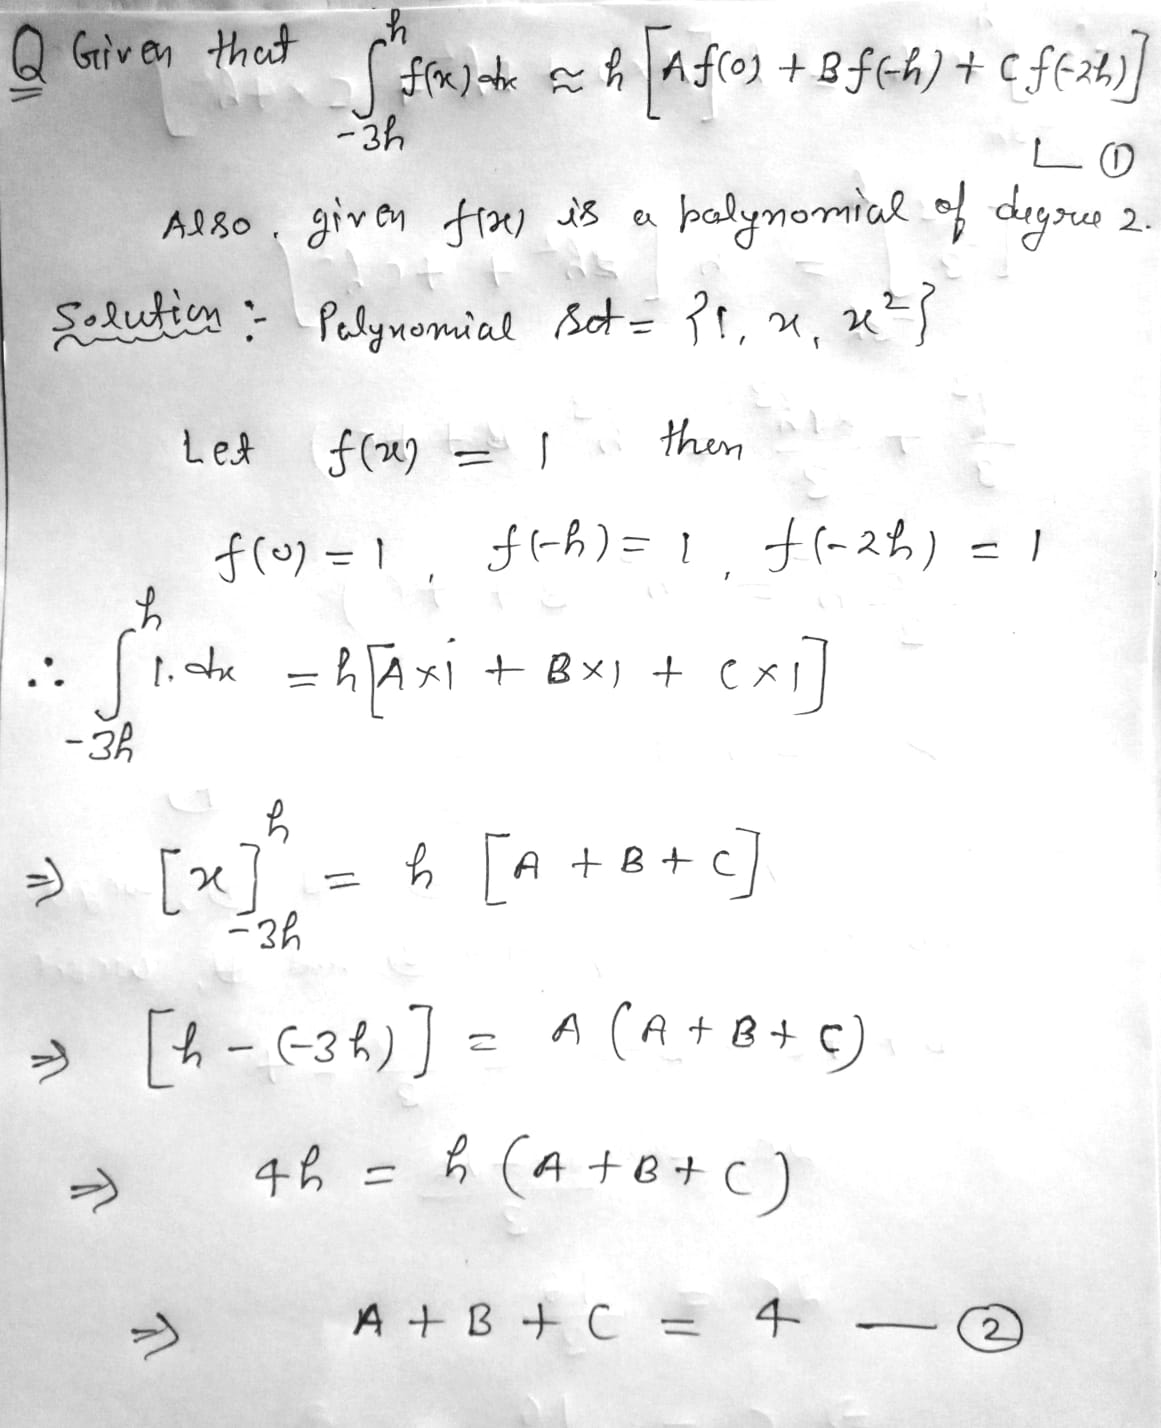 Q Given that ∫_{-3h}^{h} f(x) dx ≈ h [A f(0) + B f(-h) + C f(-2h)]
L ①
Also, given f(x) is a polynomial of degree 2.
Solution :- Polynomial Set = {1, x, x²}
Let f(x) = 1 then
f(0) = 1, f(-h) = 1, f(-2h) = 1
∴ ∫_{-3h}^{h} 1. dx = h [A×1 + B×1 + C×1]
⇒ [x]_{-3h}^{h} = h [A + B + C]
⇒ [h - (-3h)] = A (A + B + C)
⇒ 4h = h (A + B + C)
⇒ A + B + C = 4 — ②